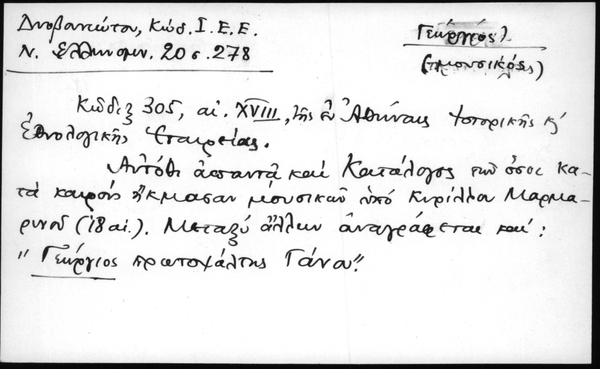 Δυοβουνιώτου, Κώδ. Ι. Ε. Ε.
Ν. Ἑλληνομν. 20 σ. 278
Γεώργιος)
(μουσικός)
Κῶδιξ 305, αἰ. XVIII, τῆς ἐν Ἀθήναις Ἱστορικῆς κ'
Ἐθνολογικῆς Ἑταιρείας.
Αὐτόθι ἀπαντᾷ καὶ Κατάλογος τῶν ὅσοι κα-
τὰ καιροὺς ἤκμασαν μουσικῶν ὑπὸ Κυρίλλου Μαρμα-
ρινοῦ (18 αἰ.). Μεταξὺ ἄλλων ἀναγράφεται καί:
"Γεώργιος πρωτοψάλτης Γάνου".